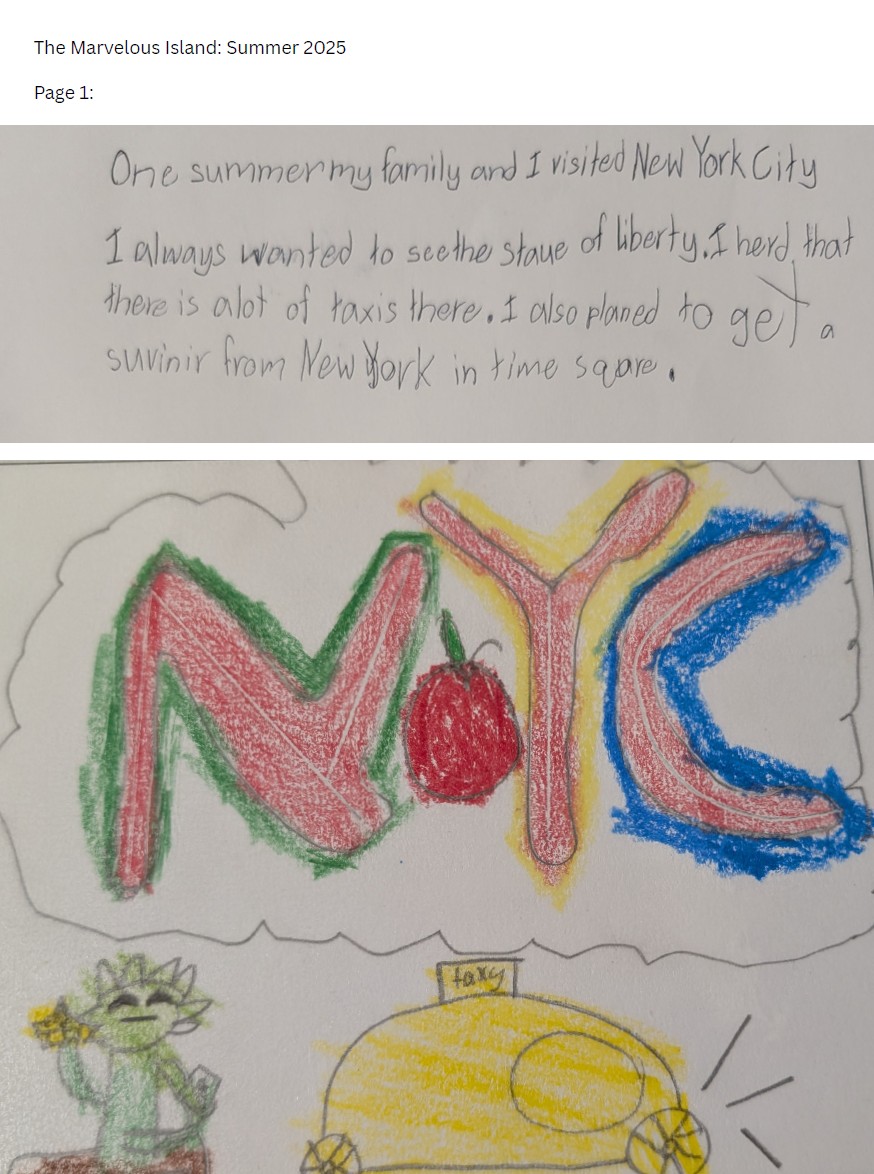 The Marvelous Island: Summer 2025
Page 1:
One summer my family and I visited New York City
I always wanted to see the staue of liberty. I herd that
there is alot of taxis there. I also planed to get a
suvinir from New York in time sqare.
NYC
taxy